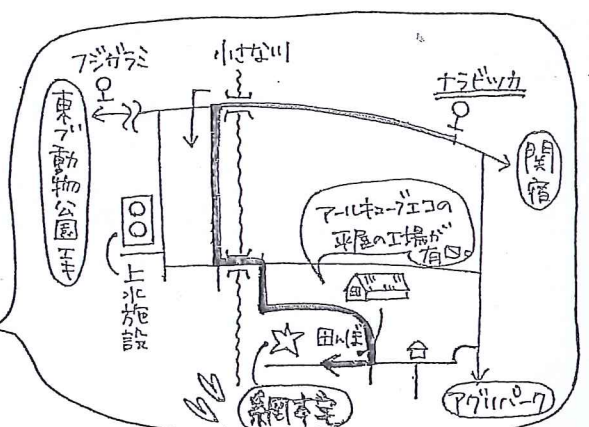 フジガラミ
小さな川
ナラビツカ
東ブ動物公園エキ
関宿
アールキューブエコの
平屋の工場が
有ります。
上水施設
田んぼ
アグリパーク